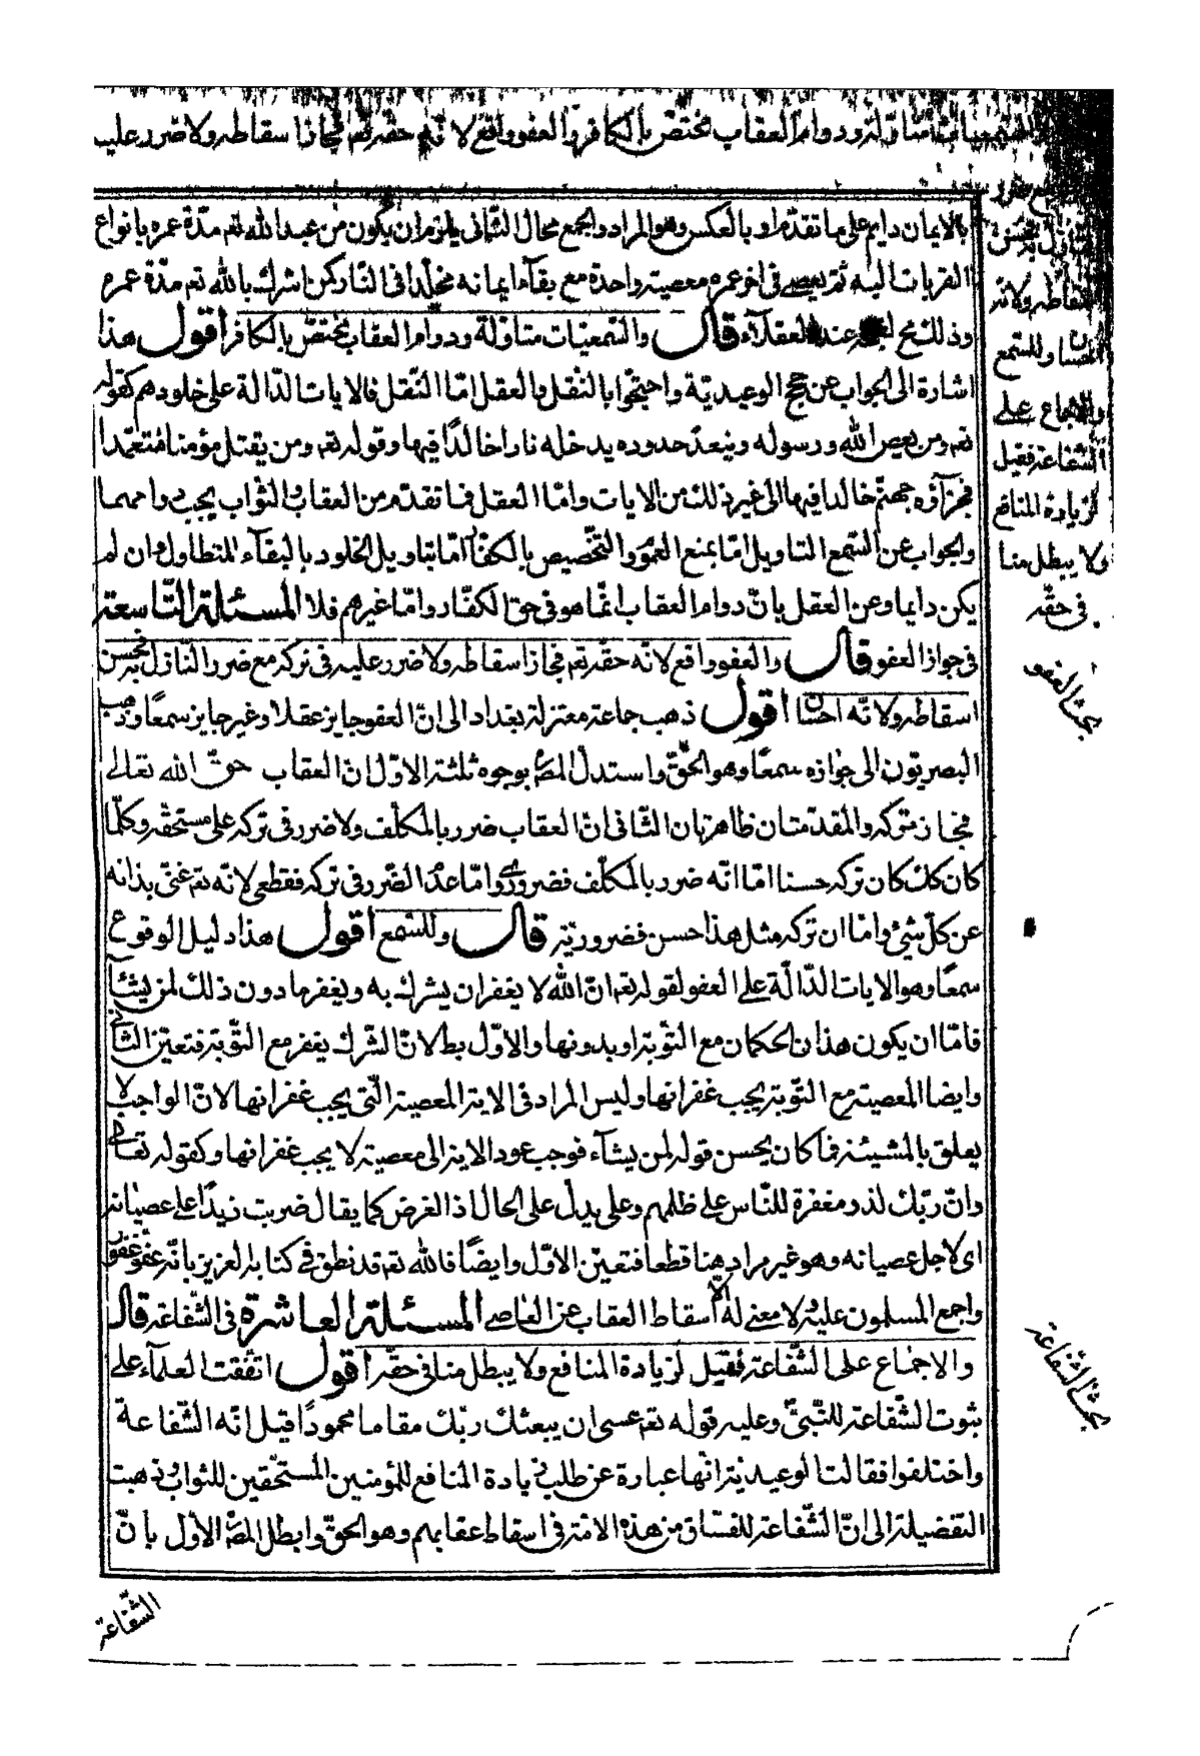 السمعيات متأولة ودوام العقاب مختص بالكافر والعفو واقع لانه حقه تعم فجاز اسقاطه ولا ضرر عليه
بالايمان دايم على ما تقدم او بالعكس وهو المراد والجمع محال الثانى يلزم ان يكون من عبد الله تعم مدة عمره بانواع
القربات اليه ثم يعصى فى اخر عمره معصية واحدة مع بقاء ايمانه مخلدا فى النار كمن اشرك بالله تعم مدة عمره
وذلك قبح عند العقلاء قال والسمعيات متاولة ودوام العقاب مختص بالكافر اقول هذا
اشارة الى الجواب عن حجج الوعيدية واحتجوا بالنقل والعقل اما النقل فالايات الدالة على خلودهم كقوله
تعم ومن يعص الله ورسوله ويتعد حدوده يدخله نارا خالدا فيها وقوله تعم ومن يقتل مؤمنا متعمدا
فجزآؤه جهنم خالدا فيها الى غير ذلك من الايات واما العقل فما تقدم من العقاب والثواب يجب دوامهما
والجواب عن السمع التاويل اما بمنع العموم والتخصيص بالكفار اما بتاويل الخلود بالبقآء المتطاول وان لم
يكن دايما وعن العقل بان دوام العقاب انما هو فى حق الكفار واما غيرهم فلا المسئلة التاسعة
فى جواز العفو قال والعفو واقع لانه حقه تعم فجاز اسقاطه ولا ضرر عليه فى تركه مع ضرر النازل به فحسن
اسقاطه ولانه احسان اقول ذهب جماعة معتزلة بغداد الى ان العفو جايز عقلا وغير جايز سمعا وذهب
البصريون الى جوازه سمعا وهو الحق واستدل المص بوجوه ثلثة الاول ان العقاب حق الله تعالى
فجاز تركه والمقدمتان ظاهرتان الثانى ان العقاب ضرر بالمكلف ولا ضرر فى تركه على مستحقه وكلما
كان كك كان تركه حسنا اما انه ضرر بالمكلف فضرورى واما عدم الضرر فى تركه فقطعى لانه تعم غنى بذاته
عن كل شئ واما ان ترك مثل هذا حسن فضرورية قال وللسمع اقول هذا دليل الوقوع
سمعا وهو الايات الدالة على العفو لقوله تعم ان الله لا يغفر ان يشرك به ويغفر ما دون ذلك لمن يشآء
فاما ان يكون هذان الحكمان مع التوبة او بدونها والاول بط لان الشرك يغفر مع التوبة فتعين الثانى
وايضا المعصية مع التوبة يجب غفرانها وليس المراد فى الاية المعصية التى يجب غفرانها لان الواجب لا
يعلق بالمشيئة فما كان يحسن قوله لمن يشآء فوجب عود الاية الى معصية لا يجب غفرانها وكقوله تعالى
وان ربك لذو مغفرة للناس على ظلمهم وعلى يدل على الحال اذ الغرض كما يقال ضربت زيدا على عصيانه
اى لاجل عصيانه وهو غير مراد هنا قطعا فتعين الاول وايضا فالله تعم قد نطق فى كتابه العزيز بانه عفو غفور
واجمع المسلمون عليه ولا معنى له الا اسقاط العقاب عن العاصى المسئلة العاشرة فى الشفاعة قال
والاجماع على الشفاعة فقيل لزيادة المنافع ولا يبطل منا فى حقه اقول اتفقت العلمآء على
ثبوت الشفاعة للنبى وعليه قوله تعم عسى ان يبعثك ربك مقاما محمودا قيل انه الشفاعة
واختلفوا فقالت الوعيدية انها عبارة عن طلب زيادة المنافع للمؤمنين المستحقين للثواب وذهبت
التفضيلة الى ان الشفاعة للفساق من هذه الامة فى اسقاط عقابهم وهو الحق وابطل المص الاول بان
النازل به فحسن
اسقاطه ولانه
احسان وللسمع
والاجماع على
الشفاعة فقيل
لزيادة المنافع
ولا يبطل منا
فى حقه
بحث العفو
بحث الشفاعة
الشفاعة